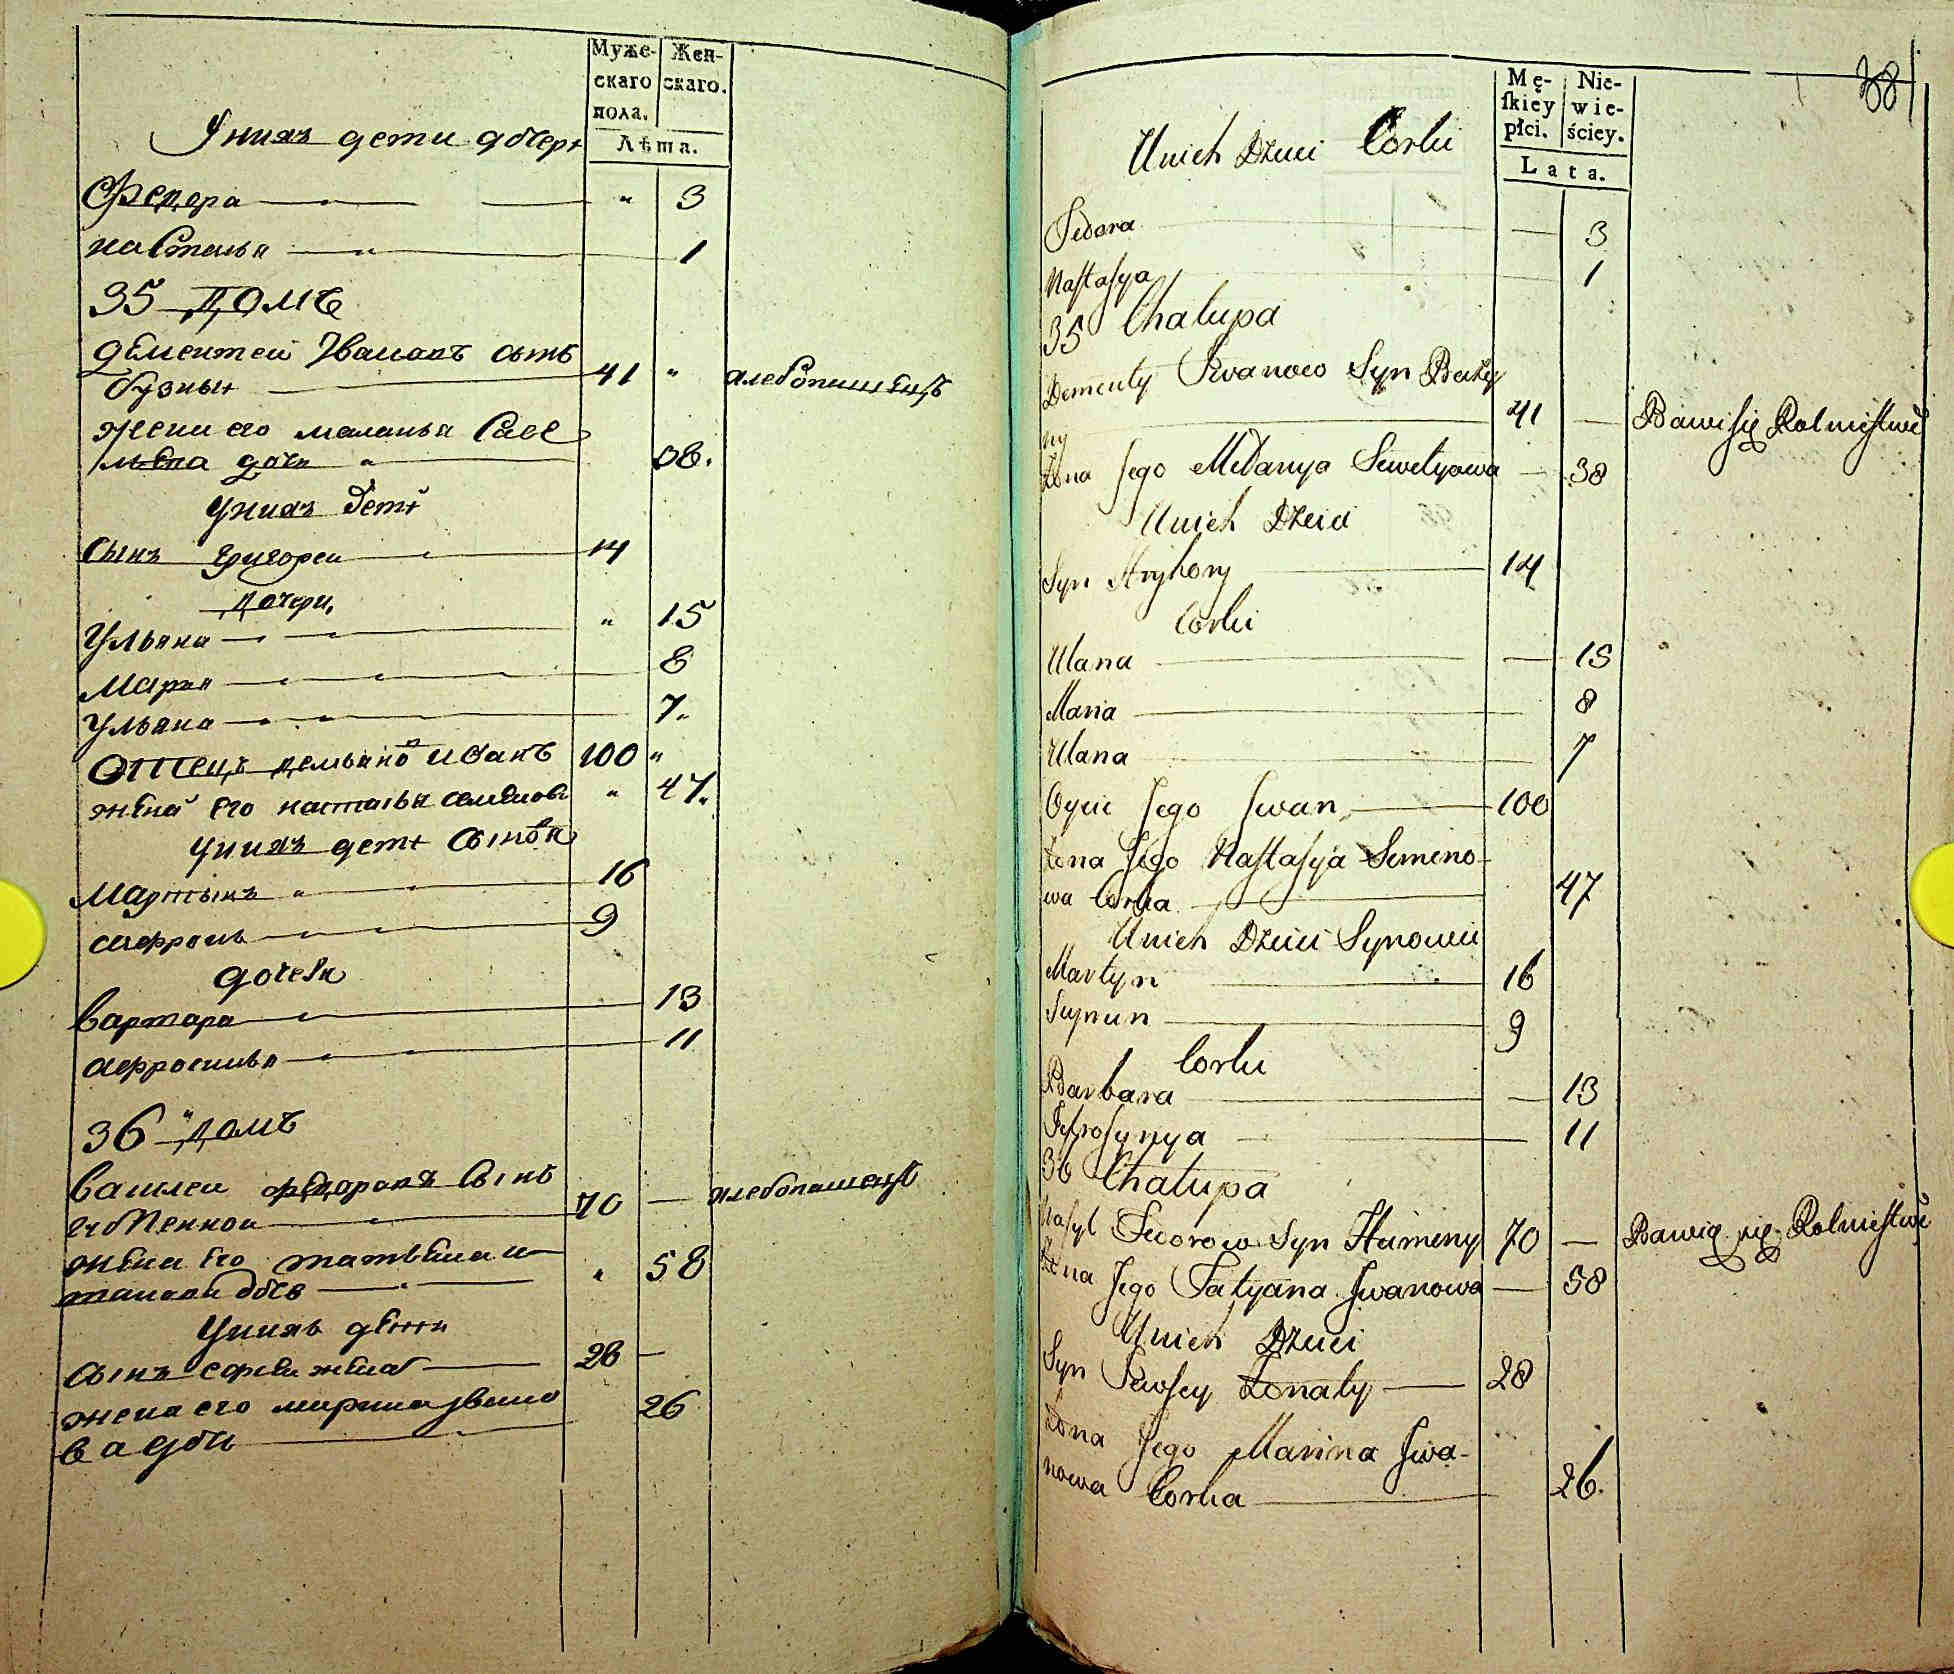 Муже-
скаго
пола.
Жен-
скаго.
Лѣта.
Унихъ дети дочери
Федора 3
настасья 1
35 домъ
дементей Ивановъ сынъ 41 хлебопашецъ
жена его маланья Саве
дочь 38.
Унихъ дети
Сынъ григореи 14
дочери
Ульяна 15
Марья 8
Ульяна 7.
Отецъ иванъ 100
жена его настасья семенова 47.
Унихъ дети Сынови
Мартынъ 16
9
дочери
Варвара 13
11
36 домъ
Василеи федоровъ Сынъ
70 хлебопашецъ
жена Его татьяна и
58
Унихъ дети
Сынъ 28
жена его марина ивано
ва дочь 26
38
Mę-
ſkiey
płci.
Nie-
wie-
ściey.
Lata.
Unich Dzieci Corki
Fedora 3
Naſtaſya 1
35 Chalupa
Dementy Iwanow Syn
ny 41 Bawi ſię Rolnictwē
Żona Jego Melanya 38
Unich Dzieci
Syn Hryhory 14
Corki
Ulana 15
Maria 8
Ulana 7
Oyciec Jego Iwan 100
Żona Jego Naſtaſya Semeno-
wa Corka 47
Unich Dzieci Synowie
Martyn 16
9
Corki
Barbara 13
11
36 Chalupa
Waſyl Fedorow Syn 70 Bawią się Rolnictwē
Żona Jego Tatyana Iwanowa 58
Unich Dzieci
Syn Żonaty 28
Żona Jego Marina Iwa-
nowa Corka 26.